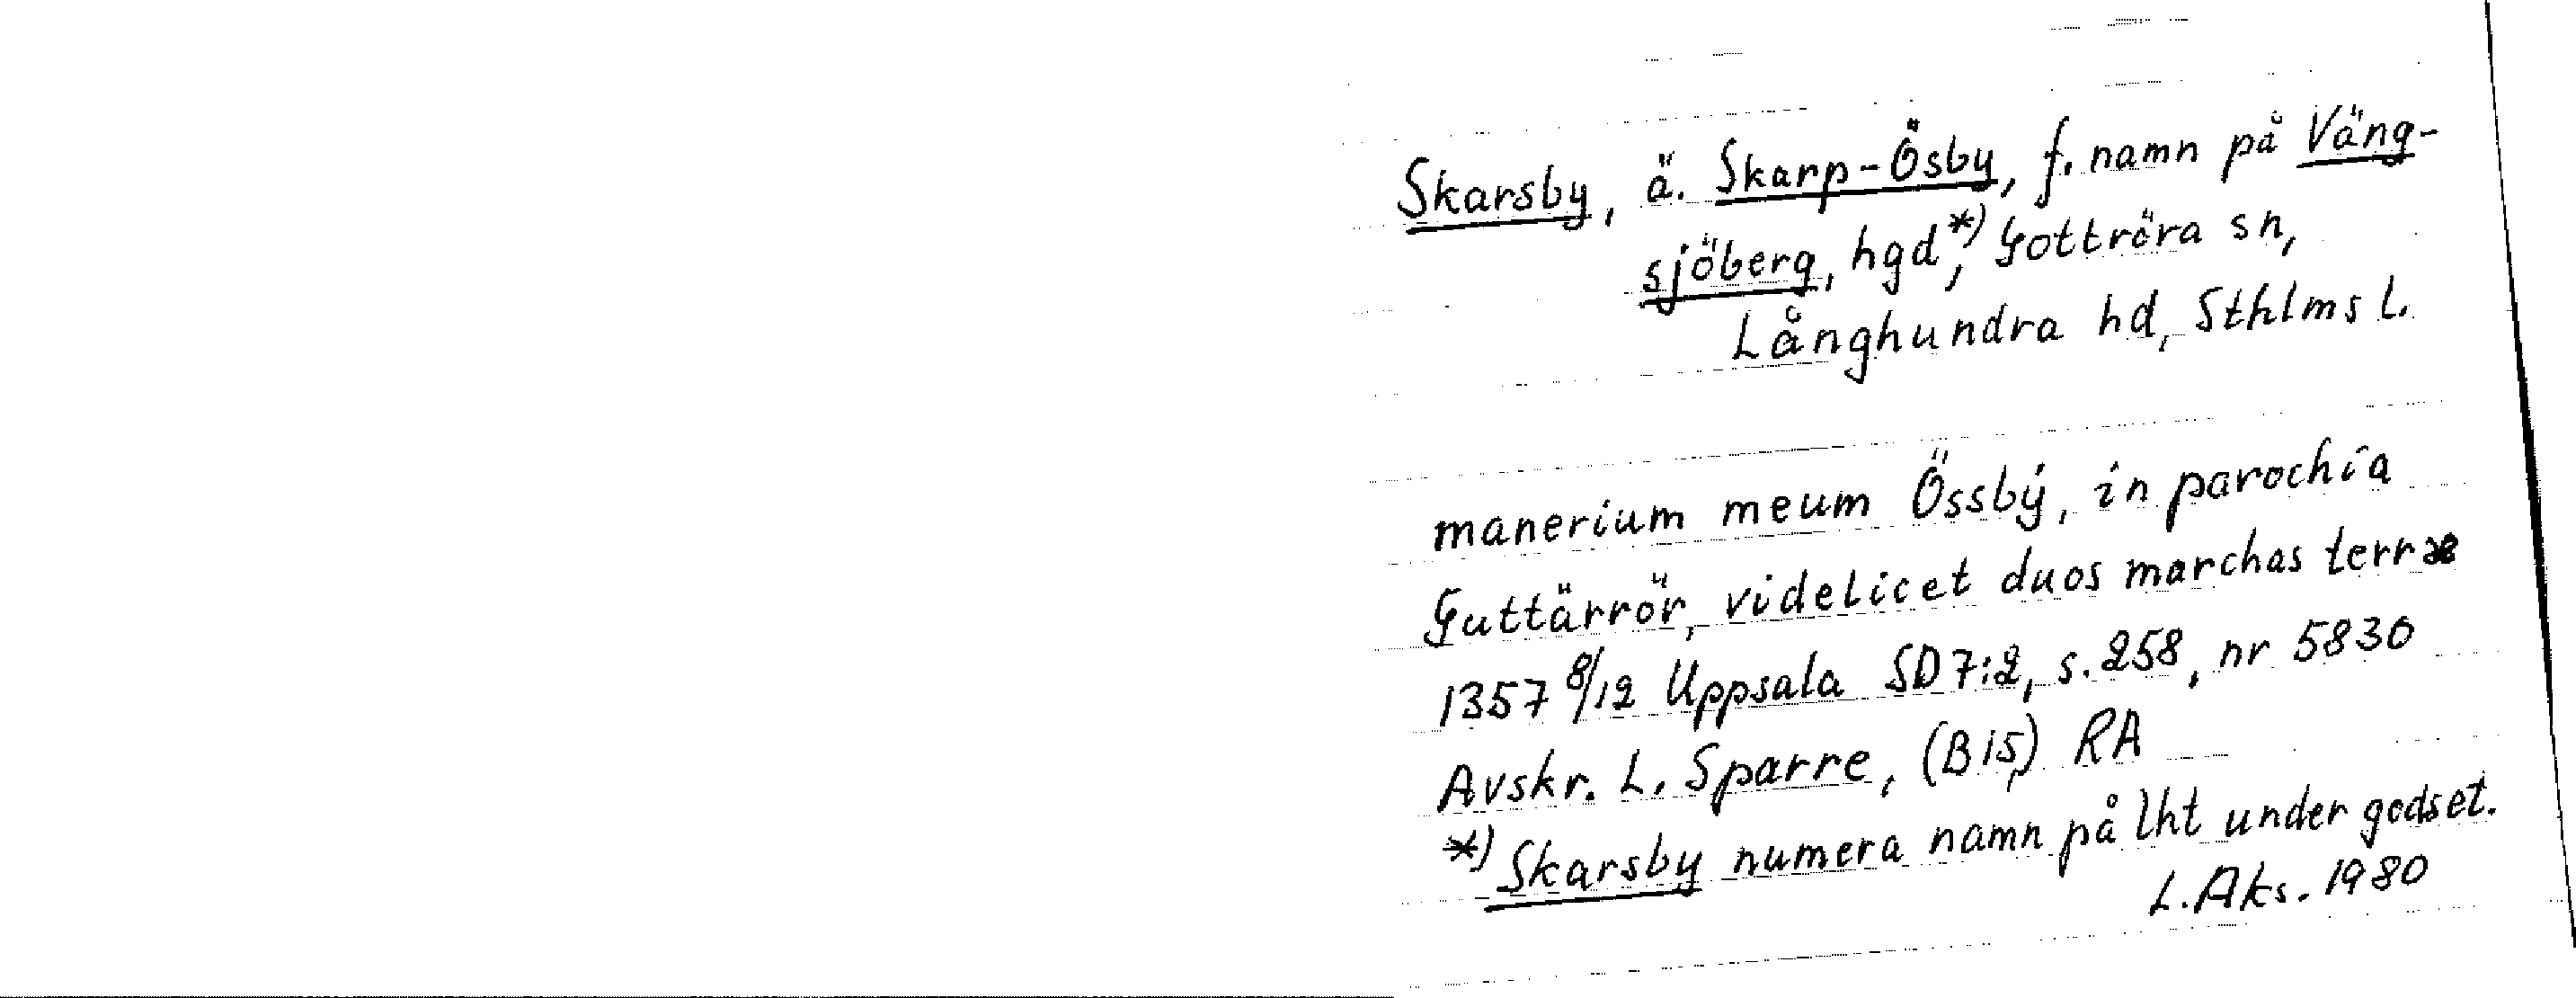 Skarsby, ä. Skarp-Ösby, f. namn på Väng-
sjöberg, hgd,*) Gottröra sn,
Långhundra hd, Sthlms l.
manerium meum Össbÿ, in parochia
Guttärrör, videlicet duos marchas terræ
1357 8/12 Uppsala SD 7:2, s. 258, nr 5830
Avskr. L. Sparre, (B 15) RA
*) Skarsby numera namn på lht under godset.
L. Aks. 1980